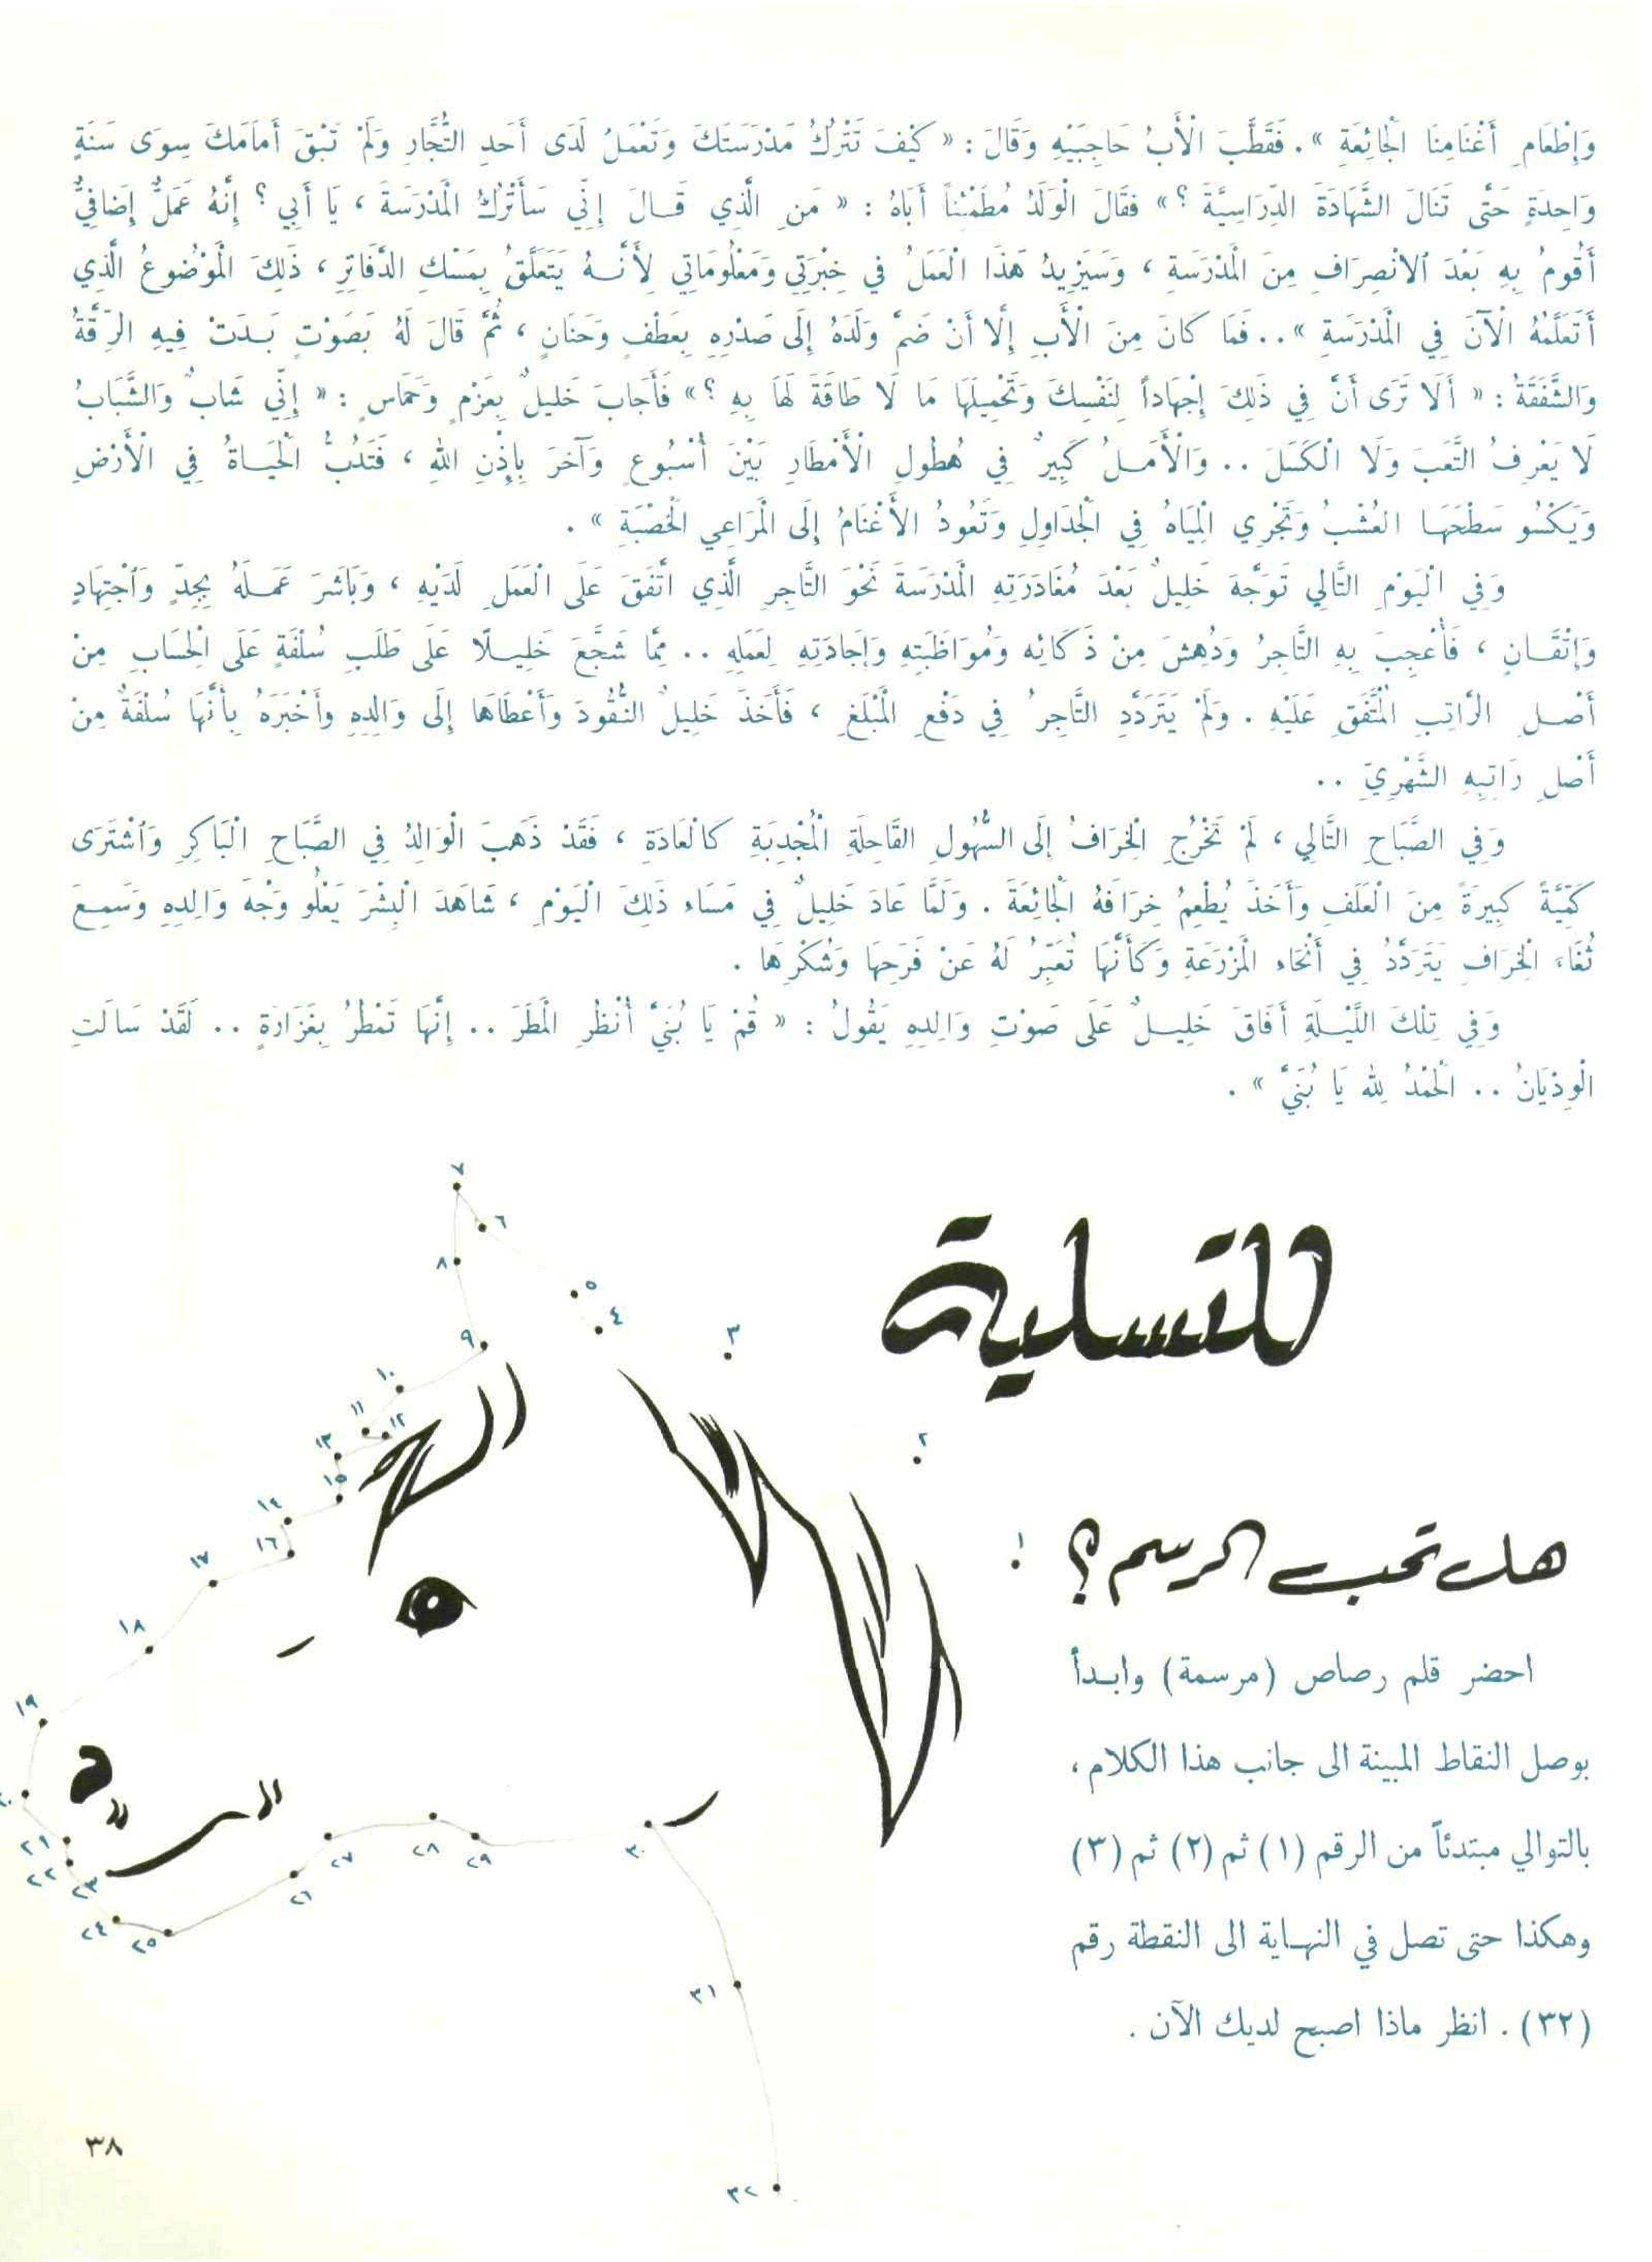 وَإِطْعَامِ أَغْنَامِنَا الْجَائِعَةِ » . فَقَطَّبَ الْأَبُ حَاجِبَيْهِ وَقَالَ : « كَيْفَ تَتْرُكُ مَدْرَسَتَكَ وَتَعْمَلُ لَدَى أَحَدِ التُّجَّارِ وَلَمْ تَبْقَ أَمَامَكَ سِوَى سَنَةٍ
وَاحِدَةٍ حَتَّى تَنَالَ الشَّهَادَةَ الدِّرَاسِيَّةَ ؟ » فقَالَ الْوَلَدُ مُطَمْئِناً أَبَاهُ : « مَنِ الَّذِي قَـالَ إِنِّي سَأَتْرُكُ الْمَدْرَسَةَ ، يَا أَبِي ؟ إِنَّهُ عَمَلٌ إِضَافِيٌّ
أَقُومُ بِهِ بَعْدَ ٱلانْصِرَافِ مِنَ الْمَدْرَسَةِ ، وَسَيَزِيدُ هَذَا الْعَمَلُ في خِبْرَتِي وَمَعْلُومَاتِي لِأَنَّـهُ يَتَعَلَّقُ بِمَسْكِ الدَّفَاتِرِ ، ذَلِكَ الْمَوْضُوعُ الَّذِي
أَتَعَلَّمُهُ الْآنَ فِي الْمَدْرَسَةِ » .. فَمَا كَانَ مِنَ الْأَبِ إِلَّا أَنْ ضَمَّ وَلَدَهُ إِلَى صَدْرِهِ بِعَطْفٍ وَحَنَانٍ ، ثُمَّ قَالَ لَهُ بَصَوْتٍ بَـدَتْ فِيهِ الرِّقَّةُ
وَالشَّفَقَةُ : « أَلَا تَرَى أَنَّ فِي ذَلِكَ إِجْهَاداً لِنَفْسِكَ وَتَحْمِيلَهَا مَا لَا طَاقَةَ لَهَا بِهِ ؟ » فَأَجَابَ خَليلٌ بِعَزْمٍ وَحَمَاسٍ : « إِنِّي شَابٌ وَالشَّبَابُ
لَا يَعْرِفُ التَّعَبَ وَلَا الْكَسَلَ .. وَالْأَمَـلُ كَبِيرٌ فِي هُطُولِ الْأَمْطَارِ بَيْنَ أُسْبُوعٍ وَآخَرَ بِإِذْنِ اللهِ ، فَتَدُبُّ الْحَيَـاةُ فِي الْأَرْضِ
وَيَكْسُو سَطْحَهَـا العُشْبُ وَتَجْرِي الْمِيَاهُ فِي الْجَدَاوِلِ وَتَعُودُ الأَغْنَامُ إِلَى الْمَرَاعِي الْخَصْبَةِ » .
وَفِي الْيَوْمِ التَّالِي تَوَجَّهَ خَلِيلٌ بَعْدَ مُغَادَرَتِهِ الْمَدْرَسَةَ نَحْوَ التَّاجِرِ الَّذِي اتَّفَقَ عَلَى الْعَمَلِ لَدَيْهِ ، وَبَاشَرَ عَمَـلَهُ بِجِدٍّ وَٱجْتِهَادٍ
وَإِتْقَـانٍ ، فَأُعْجِبَ بِهِ التَّاجِرُ وَدُهِشَ مِنْ ذَكَائِهِ وَمُوَاظَبَتِهِ وَإِجَادَتِهِ لِعَمَلِهِ .. مِمَّا شَجَّعَ خَلِيـلًا عَلَى طَلَبِ سُلْفَةٍ عَلَى الْحِسَابِ مِنْ
أَصْـلِ الرَّاتِبِ الْمُتَّفَقِ عَلَيْهِ . وَلَمْ يَتَرَدَّدِ التَّاجِرُ فِي دَفْعِ الْمَبْلَغِ ، فَأَخَذَ خَلِيلٌ النُّقُودَ وَأَعْطَاهَا إِلَى وَالِدِهِ وأَخْبَرَهُ بِأَنَّهَا سُلْفَةٌ مِنْ
أَصْلِ رَاتِبِهِ الشَّهْرِيِّ ..
وَفِي الصَّبَاحِ التَّالِي ، لَمْ تَخْرُجِ الْخِرَافُ إِلَى السُّهُولِ القَاحِلَةِ الْمُجْدِبَةِ كَالْعَادَةِ ، فَقَدْ ذَهَبَ الْوَالِدُ فِي الصَّبَاحِ الْبَاكِرِ وَٱشْتَرَى
كَمِّيَّةً كَبِيرَةً مِنَ الْعَلَفِ وَأَخَذَ يُطْعِمُ خِرَافَهُ الْجَائِعَةَ . وَلَمَّا عَادَ خَلِيلٌ فِي مَسَاءِ ذَلِكَ الْيَوْمِ ، شَاهَدَ الْبِشْرَ يَعْلُو وَجْهَ وَالِدِهِ وَسَمِـعَ
ثُغَاءَ الْخِرَافِ يَتَرَدَّدُ فِي أَنْحَاءِ الْمَزْرَعَةِ وَكَأَنَّهَا تُعَبِّرُ لَهُ عَنْ فَرَحِهَا وَشُكْرِهَا .
وَفِي تِلْكَ اللَّيْـلَةِ أَفَاقَ خَلِيـلٌ عَلَى صَوْتِ وَالِدِهِ يَقُولُ : « قُمْ يَا بُنَيَّ أُنْظُرِ الْمَطَرَ .. إِنَّهَا تَمْطُرُ بِغَزَارَةٍ .. لَقَدْ سَالَتِ
الْوِدْيَانُ .. الْحَمْدُ لِلهِ يَا بُنَيَّ » .
للتسلية
هل تحب الرسم ؟
احضر قلم رصاص (مرسمة) وابـدأ
بوصل النقاط المبينة الى جانب هذا الكلام ،
بالتوالي مبتدئاً من الرقم (١) ثم (٢) ثم (٣)
وهكذا حتى تصل في النهـاية الى النقطة رقم
(٣٢) . انظر ماذا اصبح لديك الآن .
١
٢
٣
٤
٥
٦
٧
٨
٩
١٠
١١
١٢
١٣
١٥
١٤
١٦
١٧
١٨
١٩
٢١
٢٢
٢٣
٢٤
٢٥
٢٦
٢٧
٢٨
٢٩
٣٠
٣١
٣٢
٣٨